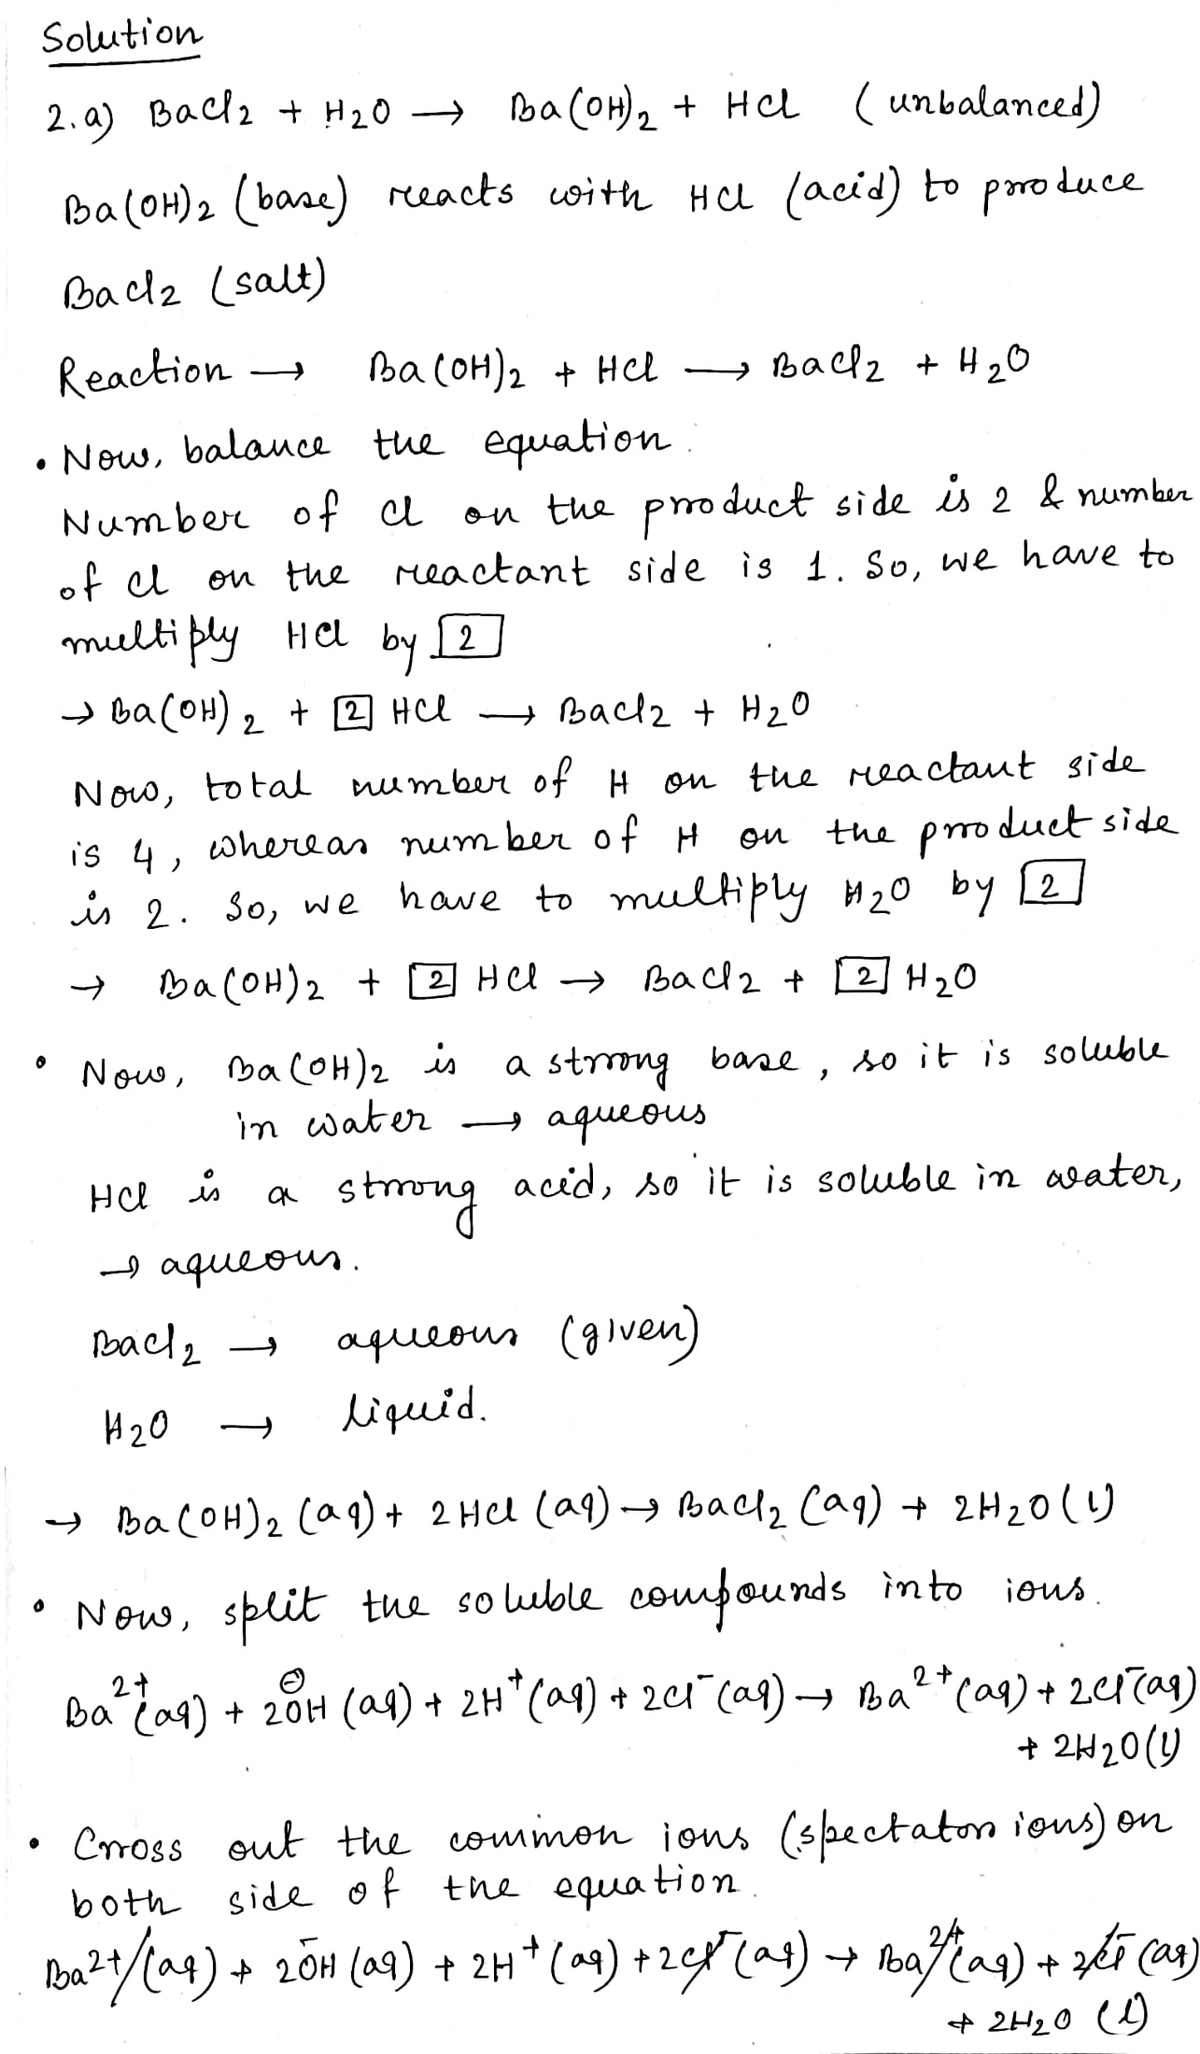 Solution
2. a) BaCl2 + H2O → Ba(OH)2 + HCl (unbalanced)
Ba(OH)2 (base) reacts with HCl (acid) to produce
BaCl2 (salt)
Reaction → Ba(OH)2 + HCl → BaCl2 + H2O
• Now, balance the equation.
Number of Cl on the product side is 2 & number
of Cl on the reactant side is 1. So, we have to
multiply HCl by 2
→ Ba(OH)2 + 2 HCl → BaCl2 + H2O
Now, total number of H on the reactant side
is 4, whereas number of H on the product side
is 2. So, we have to multiply H2O by 2
→ Ba(OH)2 + 2 HCl → BaCl2 + 2 H2O
• Now, Ba(OH)2 is a strong base, so it is soluble
in water → aqueous
HCl is a strong acid, so it is soluble in water,
→ aqueous.
BaCl2 → aqueous (given)
H2O → liquid.
→ Ba(OH)2 (aq) + 2HCl (aq) → BaCl2 (aq) + 2H2O (l)
• Now, split the soluble compounds into ions.
Ba2+(aq) + 2OH⊖ (aq) + 2H+ (aq) + 2Cl- (aq) → Ba2+ (aq) + 2Cl-(aq)
+ 2H2O (l)
• Cross out the common ions (spectator ions) on
both side of the equation.
Ba2+ (aq) + 2OH- (aq) + 2H+ (aq) + 2Cl- (aq) → Ba2+(aq) + 2Cl- (aq)
+ 2H2O (l)